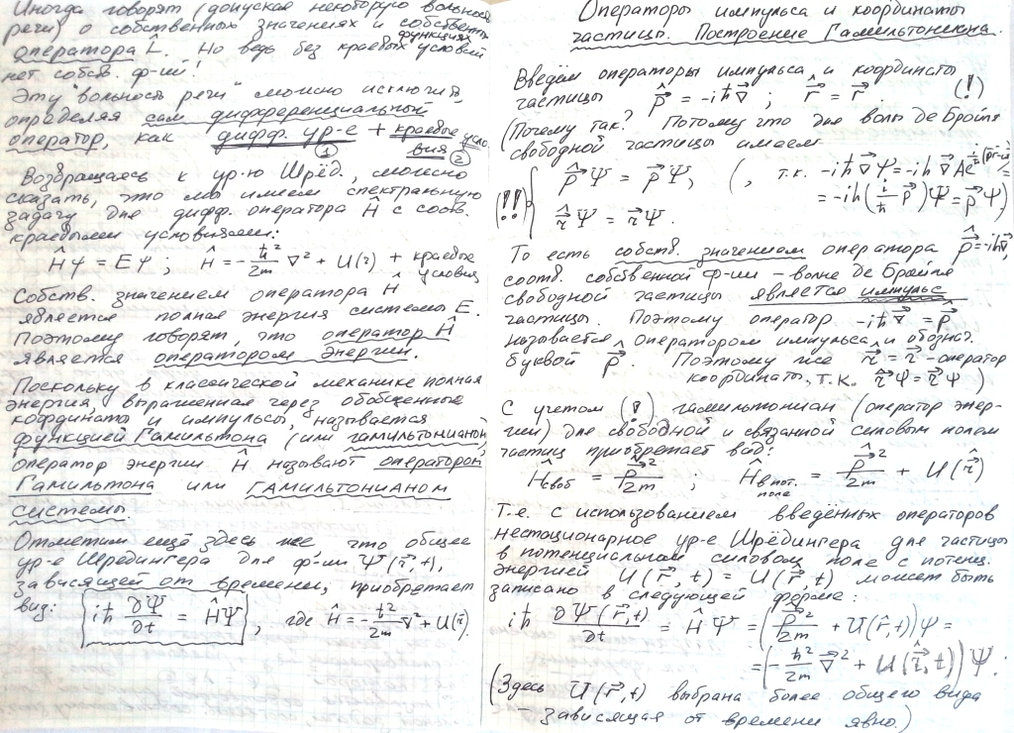 Иногда говорят (допуская некоторую вольность
речи) о собственных значениях и собственных
функциях
оператора L. Но ведь без краевых условий
нет собств. ф-ий!
Эту "вольность речи" можно исключить,
определяя сам дифференциальный
оператор, как дифф. ур-е + краевые усло-
вия
① ②
Возвращаясь к ур-ю Шрёд., можно
сказать, что мы имеем спектральную
задачу для дифф. оператора Ĥ с соотв.
краевыми условиями:
Ĥψ = Eψ ; Ĥ = -ħ²/2m ∇² + U(r) + краевые
условия
Собств. значением оператора Ĥ
является полная энергия системы E.
Поэтому говорят, что оператор Ĥ
является оператором энергии.
Поскольку в классической механике полная
энергия, выраженная через обобщенные
координаты и импульсы, называется
функцией Гамильтона (или гамильтонианом),
оператор энергии Ĥ называют оператором
Гамильтона или ГАМИЛЬТОНИАНОМ
системы
Отметим ещё здесь же, что общее
ур-е Шредингера для ф-ии Ψ(r⃗,t),
зависящей от времени, приобретает
вид: iħ ∂Ψ/∂t = ĤΨ , где Ĥ = -ħ²/2m ∇² + U(r).
Операторы импульса и координаты
частицы. Построение Гамильтониана.
Введём операторы импульса и координаты
частицы p̂ = -iħ∇⃗ ; r̂ = r⃗ (!)
(Почему так? Потому что для волн де Бройля
свободной частицы имеем
(!!) { p̂Ψ = p⃗Ψ, (, т.к. -iħ∇Ψ = -iħ∇Ae
= -iħ(i/ħ p⃗)Ψ = p⃗Ψ)
r̂Ψ = r⃗Ψ.
То есть собств. значением оператора p̂ = -iħ∇,
соотв. собственной ф-ии – волне де Бройля
свободной частицы является импульс
частицы. Поэтому оператор -iħ∇⃗ = p̂
называется оператором импульса и обознач.
буквой p̂. Поэтому же r̂ = r⃗ - оператор
координаты, т.к. r̂Ψ = r⃗Ψ)
С учетом (!) гамильтониан (оператор энер-
гии) для свободной и связанной силовым полем
частиц приобретает вид:
Ĥсвоб = p̂²/2m ; Ĥв пот. поле = p̂²/2m + U(r̂)
Т.е. с использованием введённых операторов
нестационарное ур-е Шрёдингера для частицы
в потенциальном силовом поле с потенц.
энергией U(r⃗,t) = U(r⃗,t) может быть
записано в следующей форме:
iħ ∂Ψ(r⃗,t)/∂t = ĤΨ = (p̂²/2m + U(r⃗,t))Ψ =
= (-ħ²/2m ∇⃗² + U(r̂,t))Ψ.
(Здесь U(r⃗,t) выбрана более общего вида
– зависящая от времени явно.)